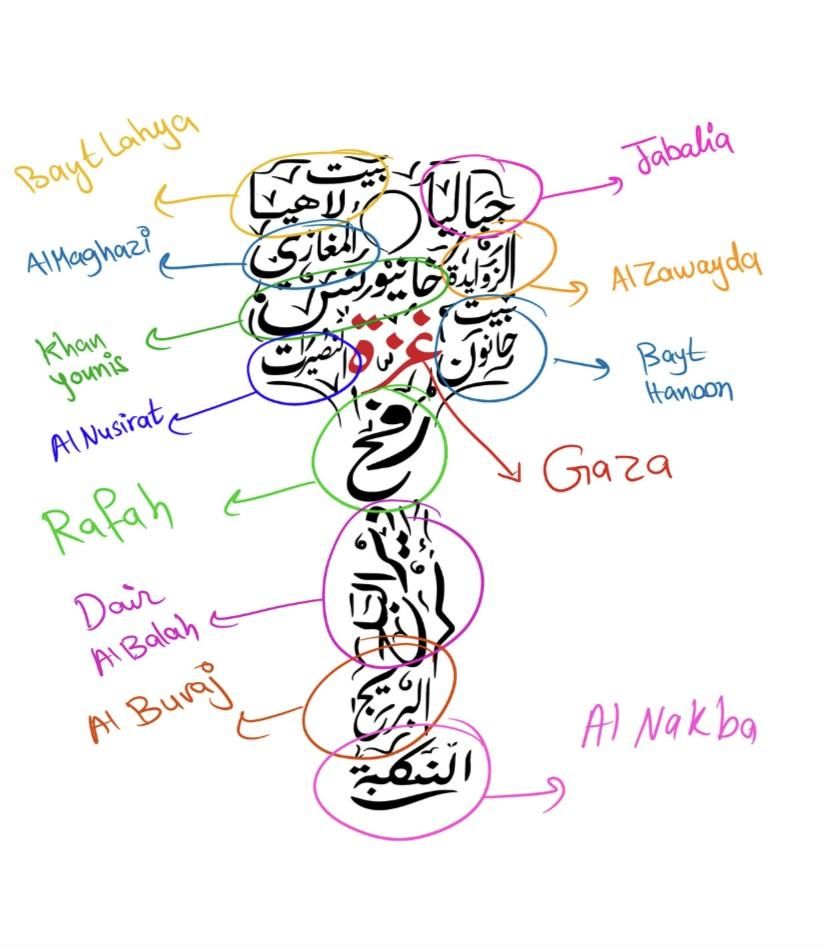 Bayt Lahya
Jabalia
بيت
لاهيا
جباليا
Al Maghazi
المغازي
الزوايدة
Al Zawayda
خانيونس
Khan
younis
النصيرات
غزة
بيت
حانون
Bayt
Hanoon
Al Nusirat
رفح
Gaza
Rafah
دير
البلح
Dair
Al Balah
البريج
Al Buraj
النكبة
Al Nakba